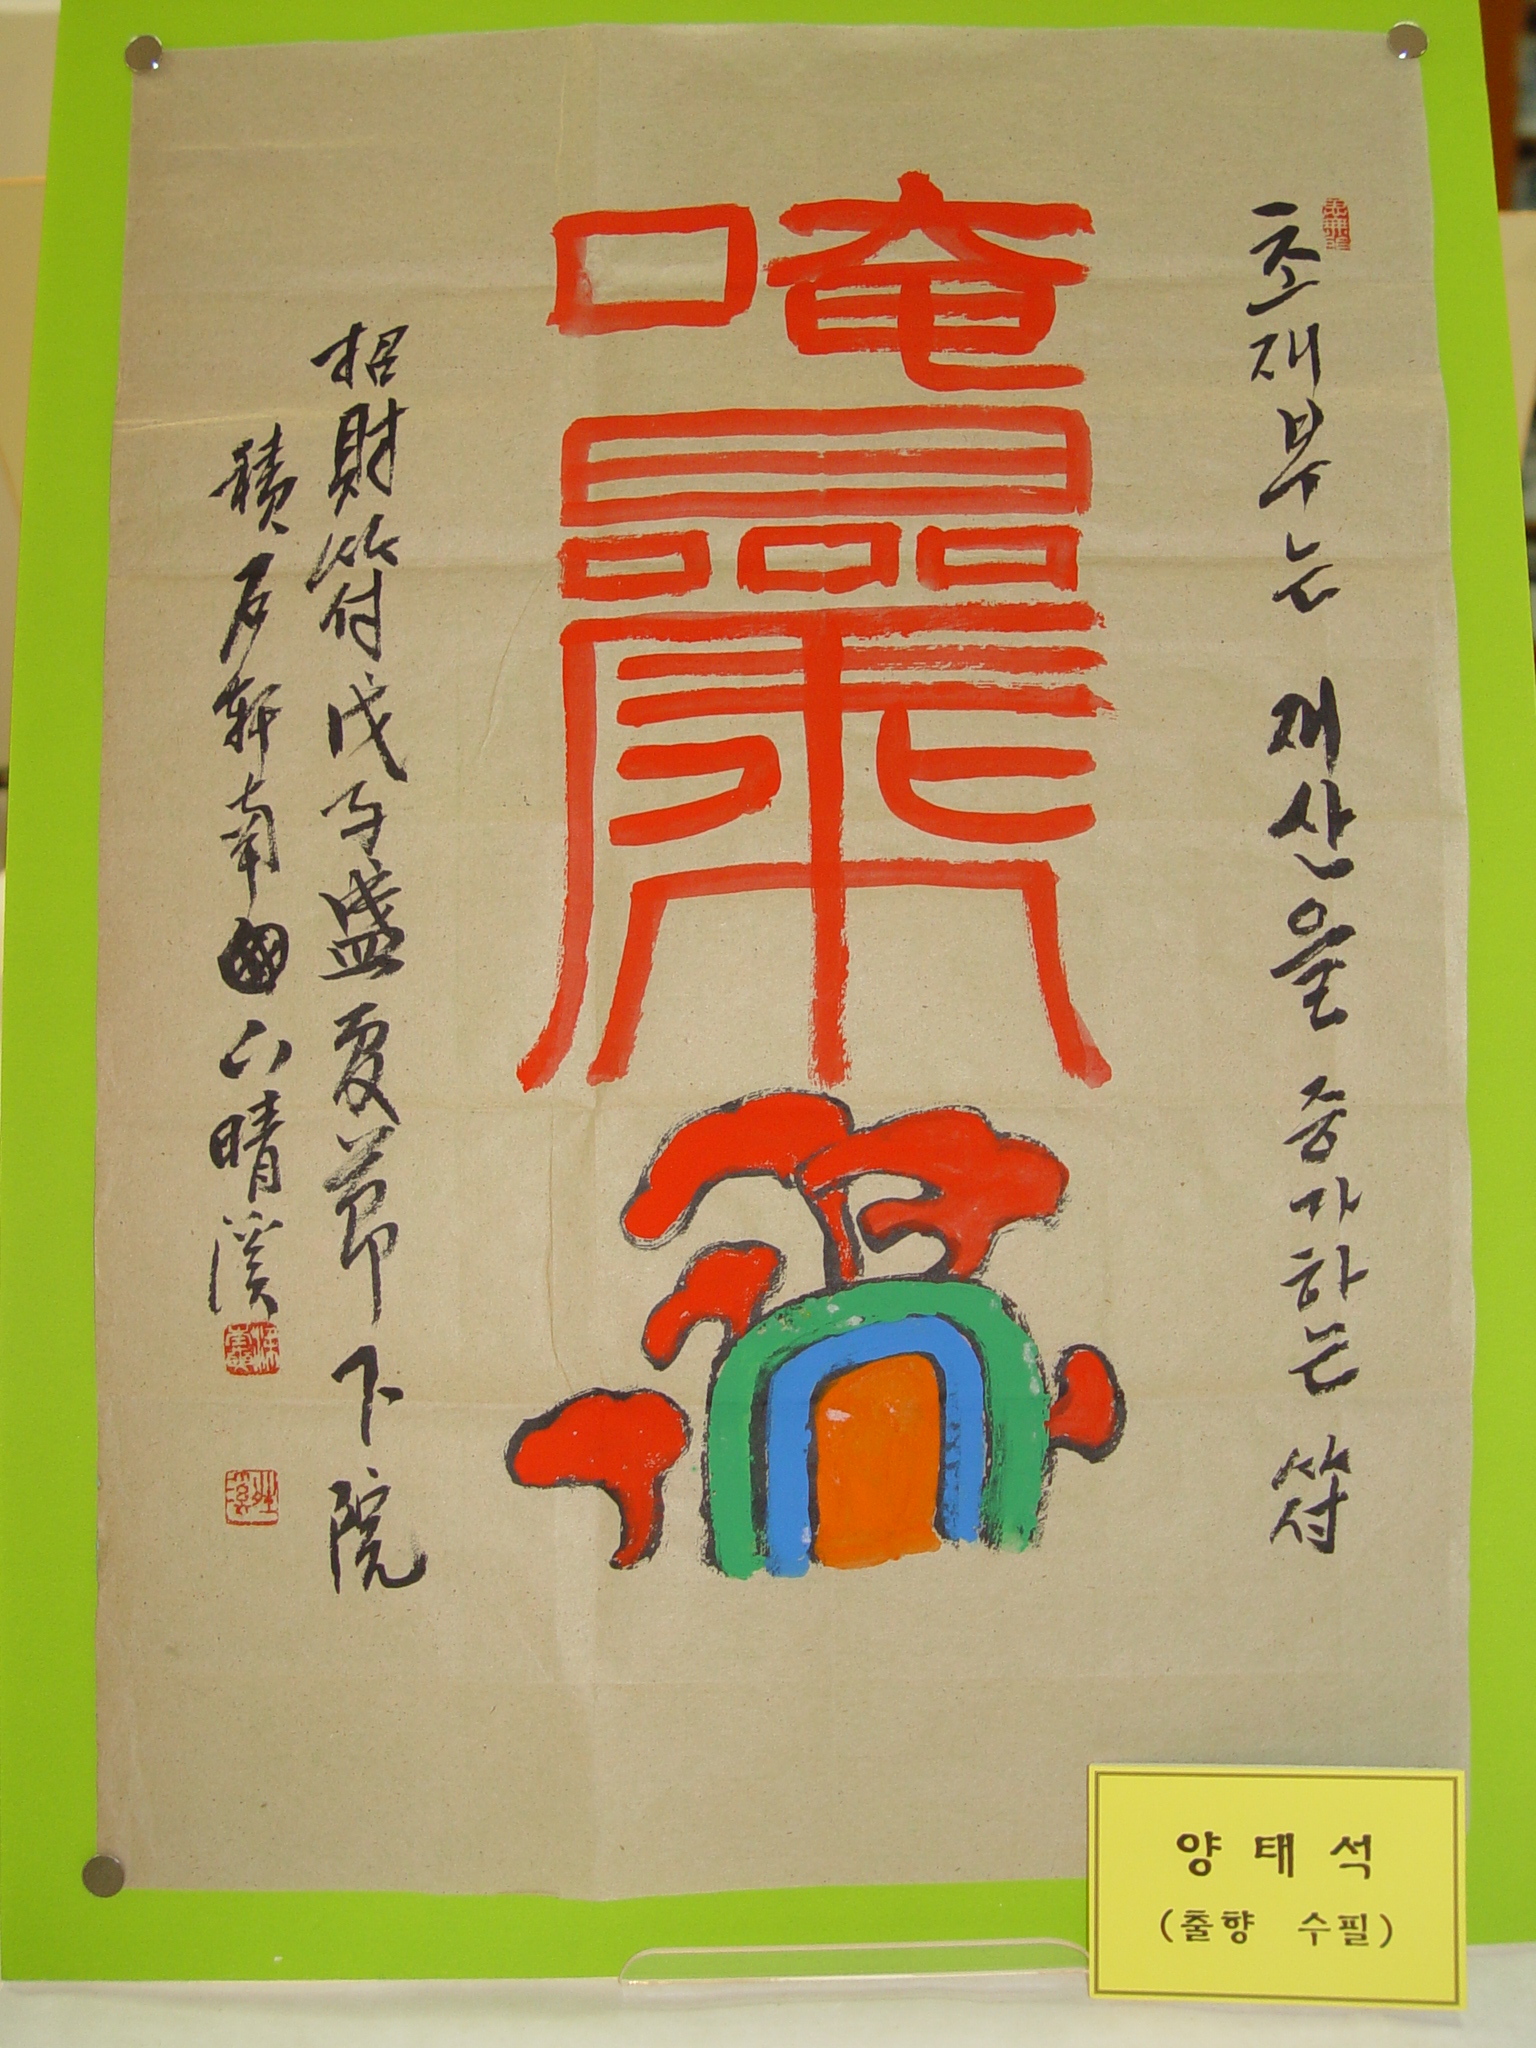 초재부는 재산을 증가하는 符
唵
招財符 戊子盛夏節下院
積石軒南 山晴溪
양태석
(출향 수필)